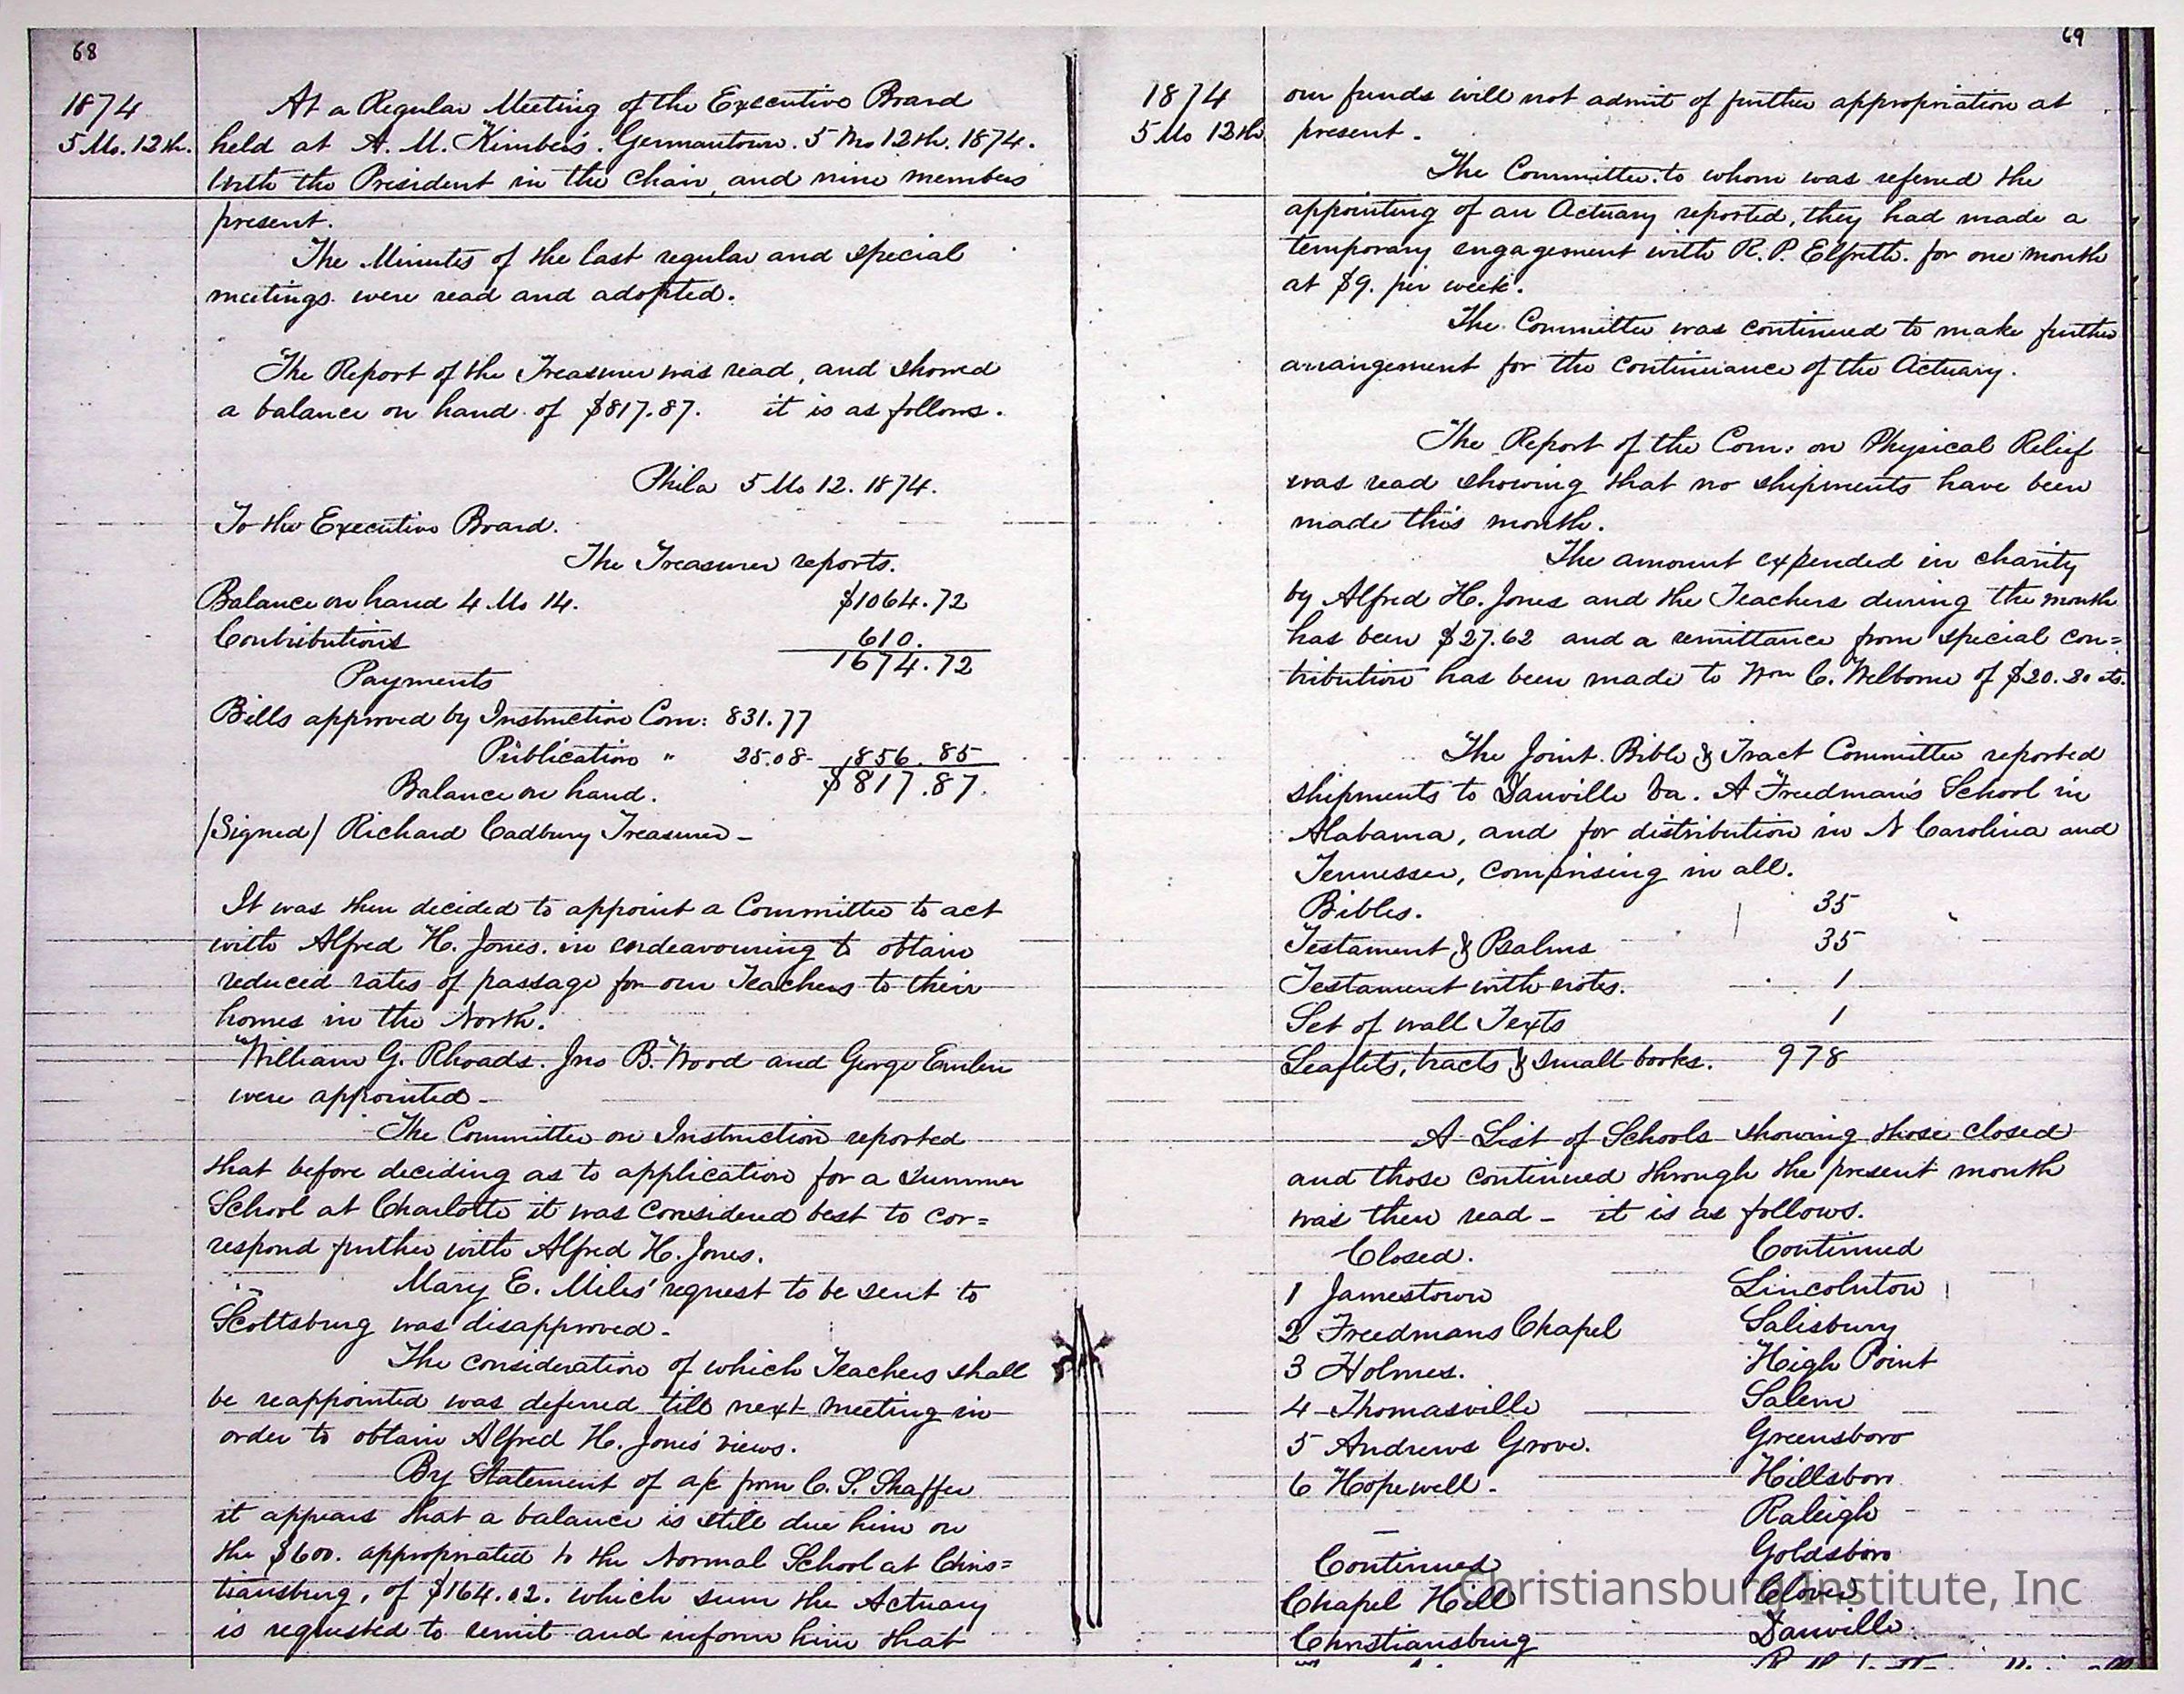 68
1874
5 Mo. 12th.
At a Regular Meeting of the Executive Board
held at A. M. Kimber's. Germantown. 5 Mo 12th. 1874.
With the President in the Chair, and nine members
present.
The Minutes of the last regular and special
meetings were read and adopted.
The Report of the Treasurer was read, and showed
a balance on hand of $817.87. it is as follows.
Phila 5 Mo 12. 1874.
To the Executive Board.
The Treasurer reports.
Balance on hand 4 Mo 14. $1064.72
Contributions 610.
1674.72
Payments
Bills approved by Instruction Com: 831.77
Publication " 25.08 - 856.85
Balance on hand. $817.87.
(Signed) Richard Cadbury Treasurer -
It was then decided to appoint a Committee to act
with Alfred H. Jones. in endeavouring to obtain
reduced rates of passage for our Teachers to their
homes in the North.
William G. Rhoads. Jno B. Wood and George Emlen
were appointed -
The Committee on Instruction reported
that before deciding as to application for a Summer
School at Charlotte it was considered best to cor=
respond further with Alfred H. Jones.
Mary E. Miles' request to be sent to
Scottsburg was disapproved -
The consideration of which Teachers shall
be reappointed was deferred till next meeting in
order to obtain Alfred H. Jones' views.
By Statement of a/c from C. S. Shaffer
it appears that a balance is still due him on
the $600. appropriated to the Normal School at Chris=
tiansburg, of $164.02. which sum the Actuary
is requested to remit and inform him that
69
1874
5 Mo 12th
our funds will not admit of further appropriation at
present.
The Committee to whom was referred the
appointing of an Actuary reported, they had made a
temporary engagement with R. P. Elfreth. for one month
at $9. per week.
The Committee was continued to make further
arrangement for the continuance of the Actuary.
The Report of the Com: on Physical Relief
was read showing that no shipments have been
made this month.
The amount expended in charity
by Alfred H. Jones and the Teachers during the month
has been $27.62 and a remittance from special con=
tribution has been made to Wm C. Welborne of $20.20 cts.
The Joint Bible & Tract Committee reported
shipments to Danville Va. A Freedman's School in
Alabama, and for distribution in N Carolina and
Tennessee, comprising in all.
Bibles. 35
Testament & Psalms 35
Testament with notes. 1
Set of wall Texts 1
Leaflets, tracts & small books. 978
A List of Schools showing those closed
and those continued through the present month
was then read - it is as follows.
Closed. Continued
1 Jamestown Lincolnton
2 Freedmans Chapel Salisbury
3 Holmes. High Point
4 Thomasville Salem
5 Andrews Grove. Greensboro
6 Hopewell. Hillsboro
Raleigh
Goldsboro
Continued Clover
Chapel Hill Danville
Christiansburg
Christiansburg Institute, Inc